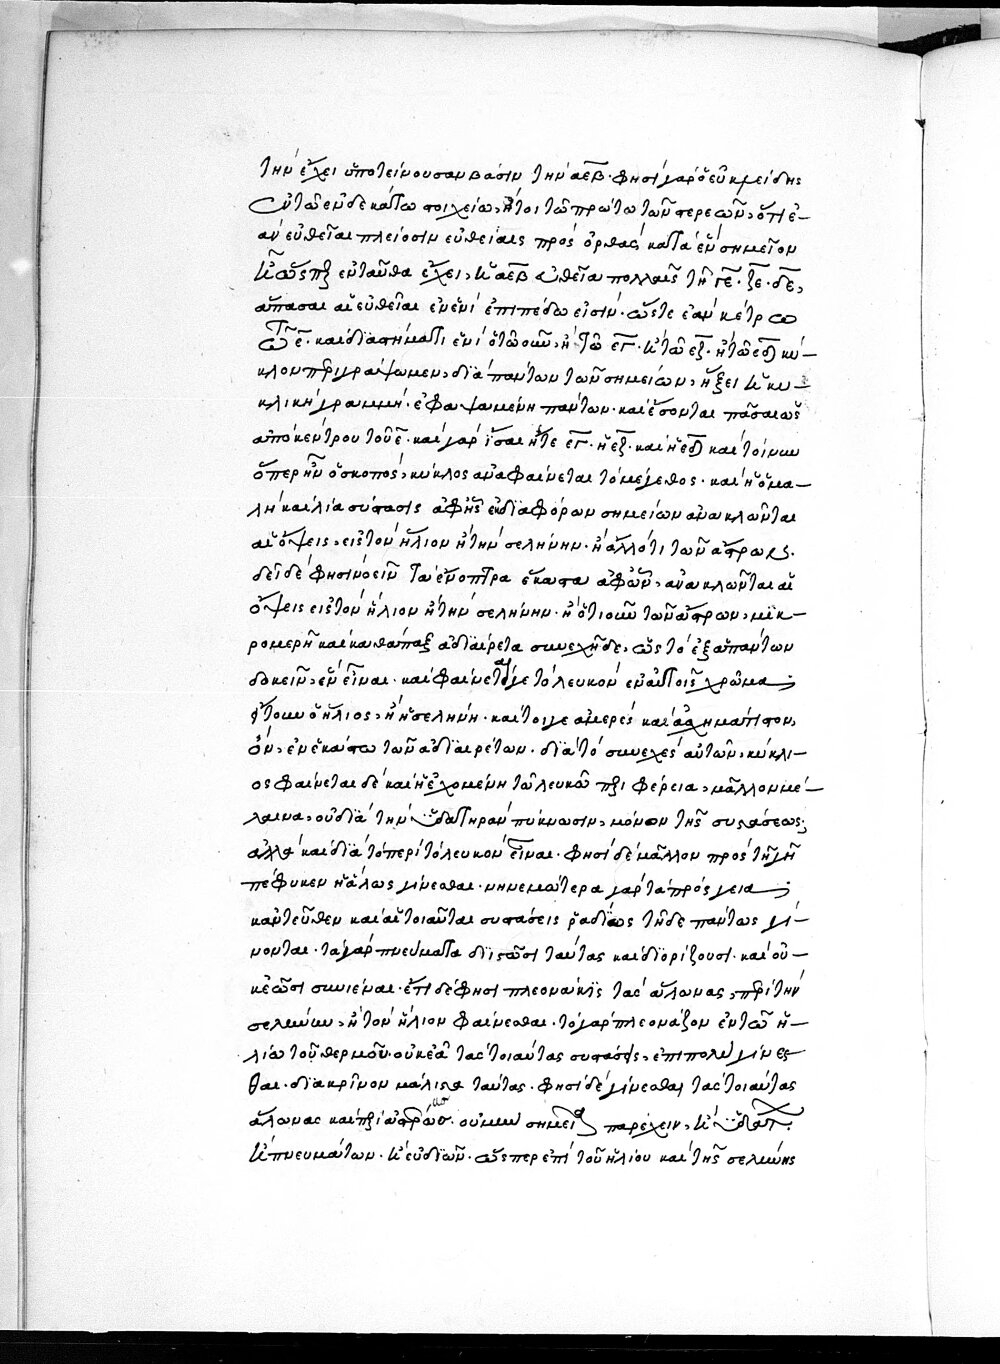 τὴν ἔχει ὑποτείνουσαν βάσιν τὴν αεβ· φησὶ γὰρ ὁ εὐκλείδης
ἐν τῶ ἑνδεκάτω στοιχείω, ἤτοι τῶ πρώτω τῶν στερεῶν, ὅτι ἐ-
ὰν εὐθεῖαι πλείοσιν εὐθείαις πρὸς ὀρθὰς κατὰ ἓν σημεῖον
ὥσπερ ἐνταῦθα ἔχει, ἡ αεβ εὐθεῖα πολλαῖς τῆ γε· ξε· δε,
ἅπασαι αἱ εὐθεῖαι ἐν ἑνὶ ἐπιπέδω εἰσίν· ὥστε ἐὰν κέντρω
τῶ ε· καὶ διαστήματι ἑνὶ ὁτωοῦν, ἢ τῶ εγ· ἢ τῶ εξ· ἢ τῶ εδ κύ-
κλον περιγράψωμεν, διὰ πάντων τῶν σημείων, ἥξει ἡ κυ-
κλικὴ γραμμή· ἐφαψαμένη πάντων· καὶ ἔσονται πᾶσαι ὡς
ἀπὸ κέντρου τοῦ ε· καὶ γὰρ ἴσαι ἥτε εγ· ἡ εξ· καὶ ἡ εδ καὶ τοίνυν
ὅπερ ἦν ὁ σκοπός, κύκλος ἀναφαίνεται τὸ μέγεθος· καὶ ἡ ὁμα-
λὴ καὶ λία σύστασις ἀφ' ἧς ἐκ διαφόρων σημείων ἀνακλῶνται
αἱ ὄψεις, εἰς τὸν ἥλιον ἢ τὴν σελήνην· ἢ ἄλλό τι τῶν ἄστρων·
δεῖ δέ φησι νοεῖν τὰ ἔνοπτρα ἕκαστα ἀφ' ὧν, ἀνακλῶνται αἱ
ὄψεις εἰς τὸν ἥλιον ἢ τὴν σελήνην· ἢ ὁτιοῦν τῶν ἄστρων, μικ-
ρομερῆ καὶ καθάπαξ ἀδιαίρετα συνεχῆ δὲ, ὡς τὸ ἐξ ἁπάντων
δοκεῖν, ἓν εἶναι· καὶ φαίνεταί γε τὸ λευκὸν ἐν αὐτοῖς χρῶμα
ἤτοι ὁ ἥλιος, ἢ ἡ σελήνη· καί τοι γε ἀμερὲς καὶ ἀσχημάτιστον,
ὄν, ἐν ἑκάστω τῶν ἀδιαιρέτων· διὰ τὸ συνεχὲς αὐτῶν, κύκλι-
ος φαίνεται δὲ καὶ ἡ ἐχομένη τῶ λευκῶ περιφέρεια, μᾶλλον μέ-
λαινα, οὐ διὰ τὴν πύκνωσιν, μόνον τῆς συστάσεως·
ἀλλὰ καὶ διὰ τὸ περὶ τὸ λευκὸν εἶναι· φησὶ δὲ μᾶλλον πρὸς τῆ γῆ
πέφυκεν ἡ ἅλως γίνεσθαι· νηνεμώτερα γὰρ τὰ πρόσγεια
κἀντεῦθεν καὶ αἱ τοιαῦται συστάσεις ῥαδίως τῆδε πάντως γί-
νονται· τὰ γὰρ πνεύματα διϊστῶσι ταύτας καὶ διορίζουσι· καὶ οὐ-
κ ἐῶσι συνιέναι· ἔτι δέ φησι πλεονάκις τὰς ἅλωνας, περὶ τὴν
σελήνην, ἢ τὸν ἥλιον φαίνεσθαι· τὸ γὰρ πλεονάζον ἐν τῶ ἡ-
λίω τοῦ θερμοῦ· οὐκ ἐᾶ τὰς τοιαύτας συστάσεις, ἐπιπολὺ γίνεσ-
θαι· διακρῖνον μάλιστα ταύτας· φησὶ δὲ γίνεσθαι τὰς τοιαύτας
ἅλωνας καὶ περὶ ἀστέρας· οὐ μὴν σημεῖα παρέχειν,
καὶ πνευμάτων· καὶ εὐδιῶν· ὥσπερ ἐπὶ τοῦ ἡλίου καὶ τῆς σελήνης